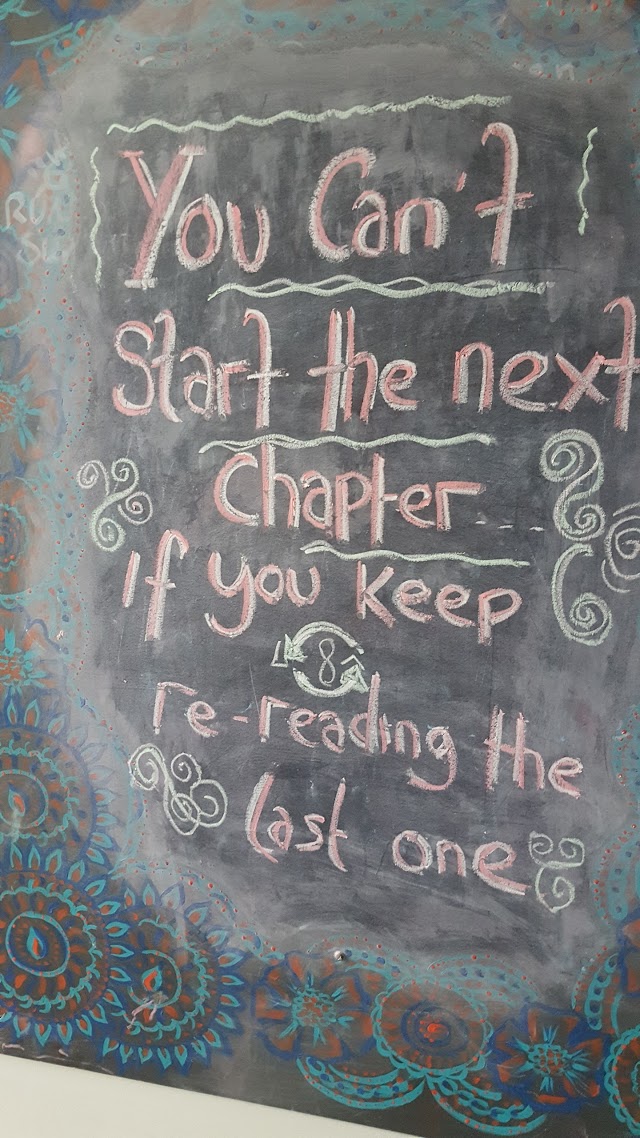 You Can't
Start the next
Chapter....
If you keep
8
re-reading the
last one